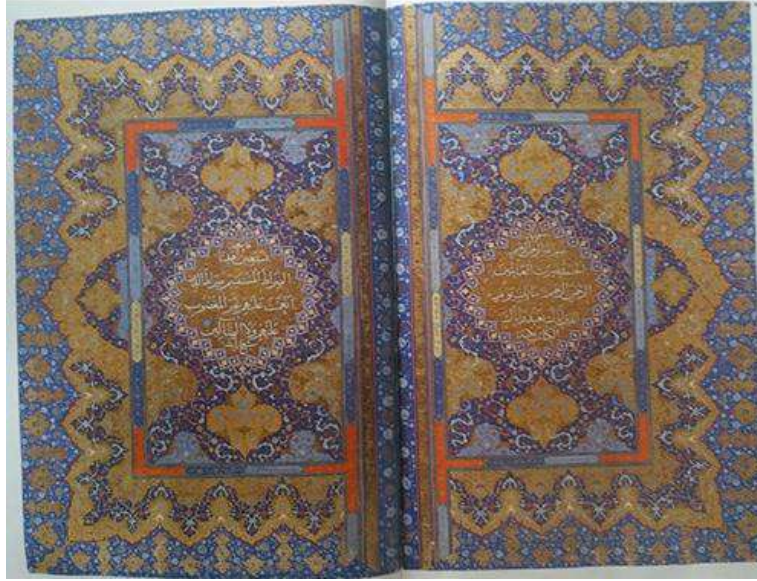 بسم الله الرحمن الرحيم
الحمد لله رب العالمين
الرحمن الرحيم مالك يوم
الدين اياك نعبد واياك
نستعين اهدنا
الصراط المستقيم صراط الذين
انعمت عليهم غير المغضوب
عليهم ولا الضالين